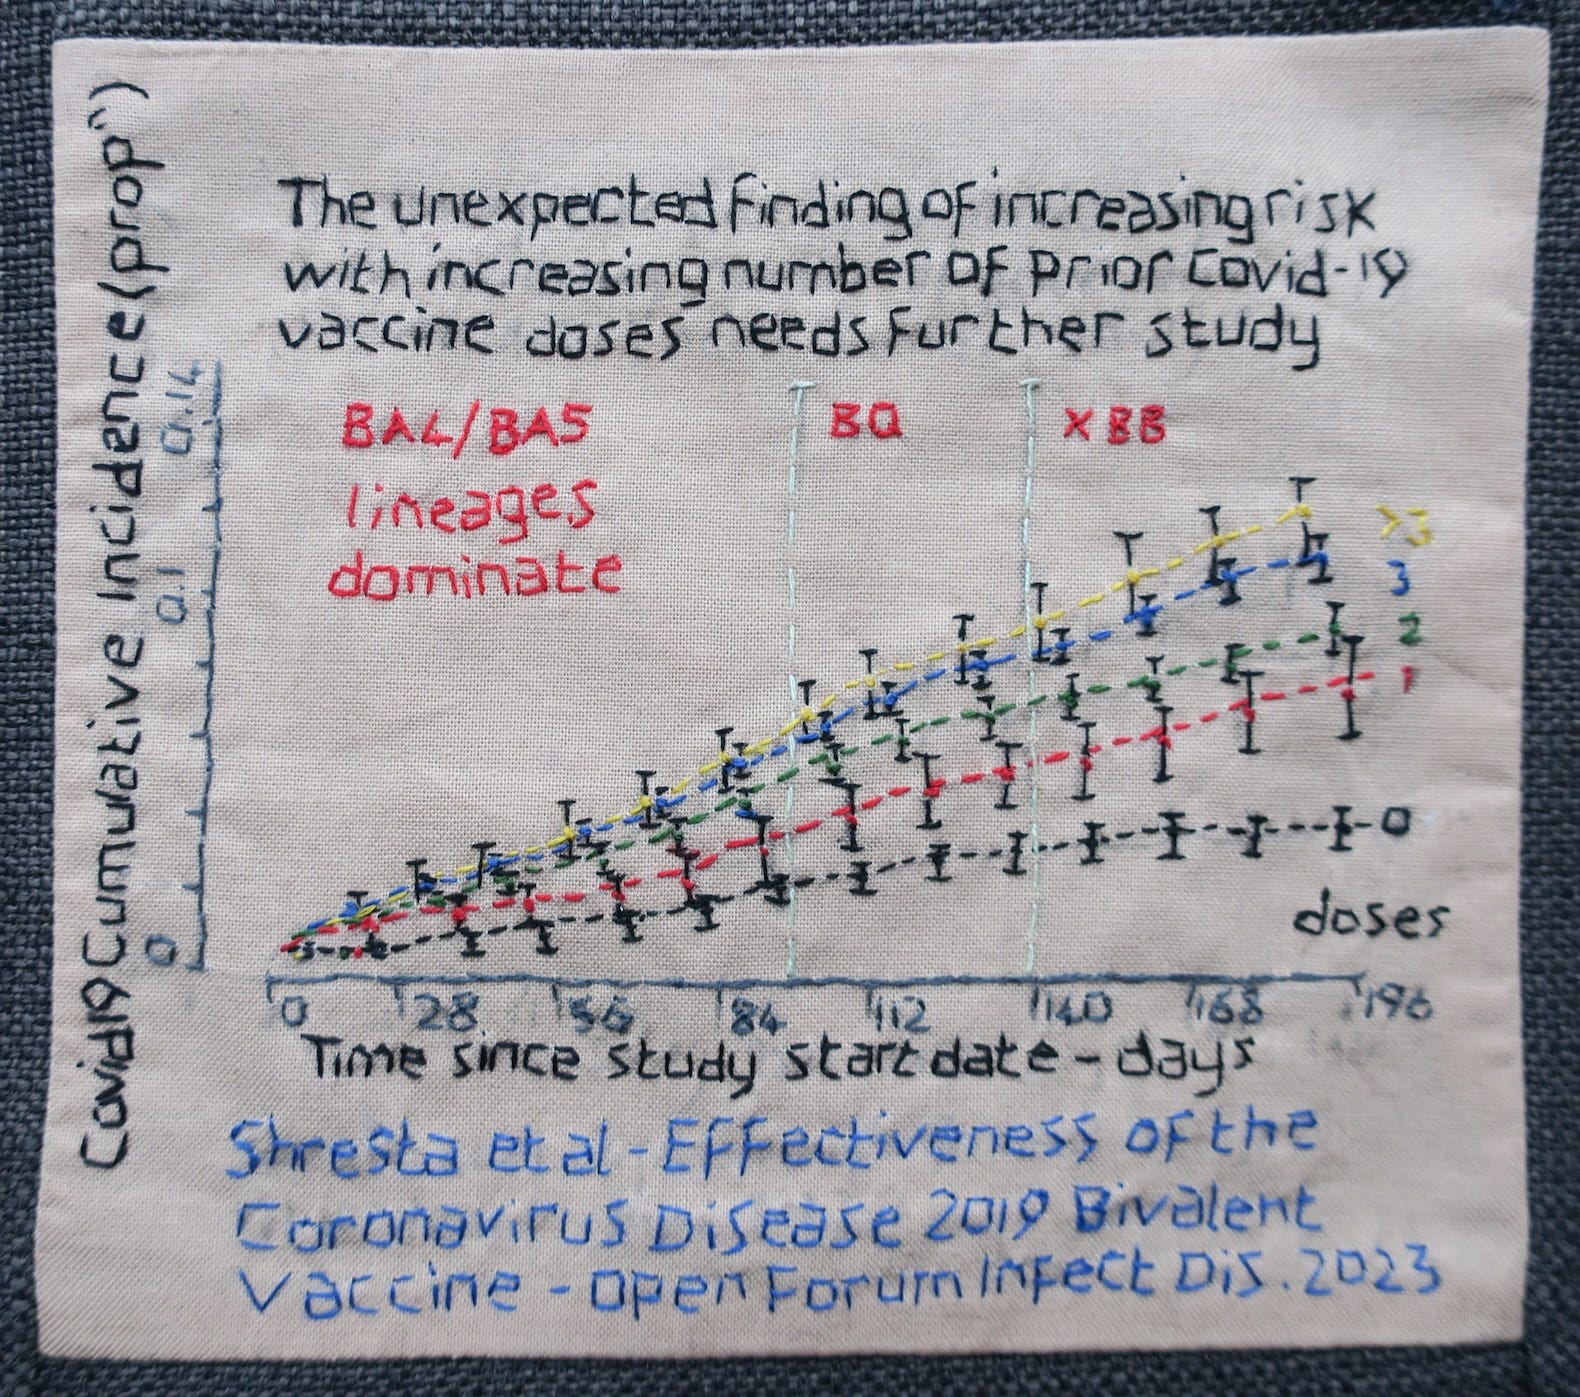 The unexpected finding of increasing risk
with increasing number of prior Covid-19
vaccine doses needs further study
Covid19 Cumulative Incidence (prop")
0.14
0.1
0
BA4/BA5
lineages
dominate
BQ
XBB
>3
3
2
1
0
doses
0 28 56 84 112 140 168 196
Time since study start date - days
Shresta et al - Effectiveness of the
Coronavirus Disease 2019 Bivalent
Vaccine - Open Forum Infect Dis. 2023